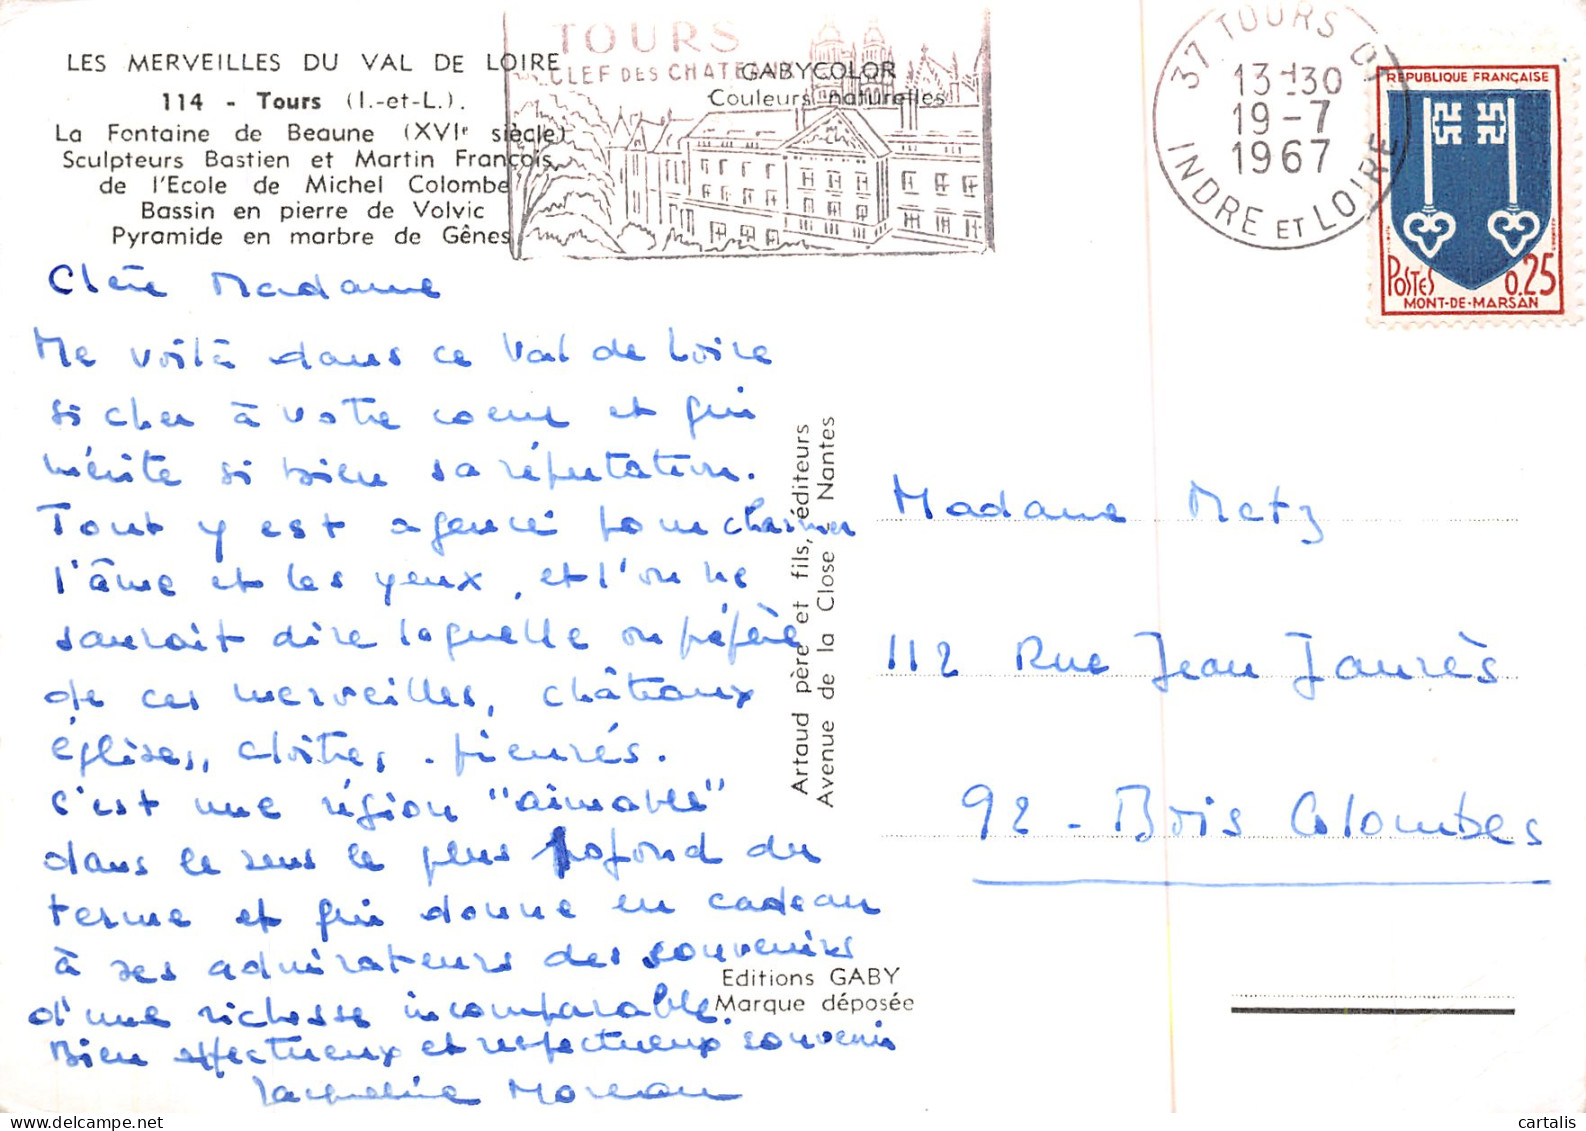 LES MERVEILLES DU VAL DE LOIRE
114 - Tours (I.-et-L.).
La Fontaine de Beaune (XVIe siècle)
Sculpteurs Bastien et Martin François
de l'Ecole de Michel Colombe
Bassin en pierre de Volvic
Pyramide en marbre de Gênes
TOURS
CLEF DES CHATEAUX
GABYCOLOR
Couleurs naturelles
37 TOURS
13-30
19-7
1967
INDRE ET LOIRE
REPUBLIQUE FRANÇAISE
POSTES 0.25
MONT-DE-MARSAN
Chère Madame
Me voilà dans ce Val de Loire
si cher à votre coeur et qui
mérite si bien sa réputation.
Tout y est agencé pour charmer
l'âme et les yeux, et l'on ne
saurait dire laquelle on préfère
de ces merveilles, châteaux
églises, cloîtres, prieurés.
C'est une région "aimable"
dans le sens le plus profond du
terme et qui donne en cadeau
à ses admirateurs des souvenirs
d'une richesse incomparable.
Bien affectueux et respectueux souvenir
Jacqueline Moreau
Artaud père et fils, éditeurs
Avenue de la Close - Nantes
Madame Metz
112 Rue Jean Jaurès
92 - Bois Colombes
Editions GABY
Marque déposée
cartalis